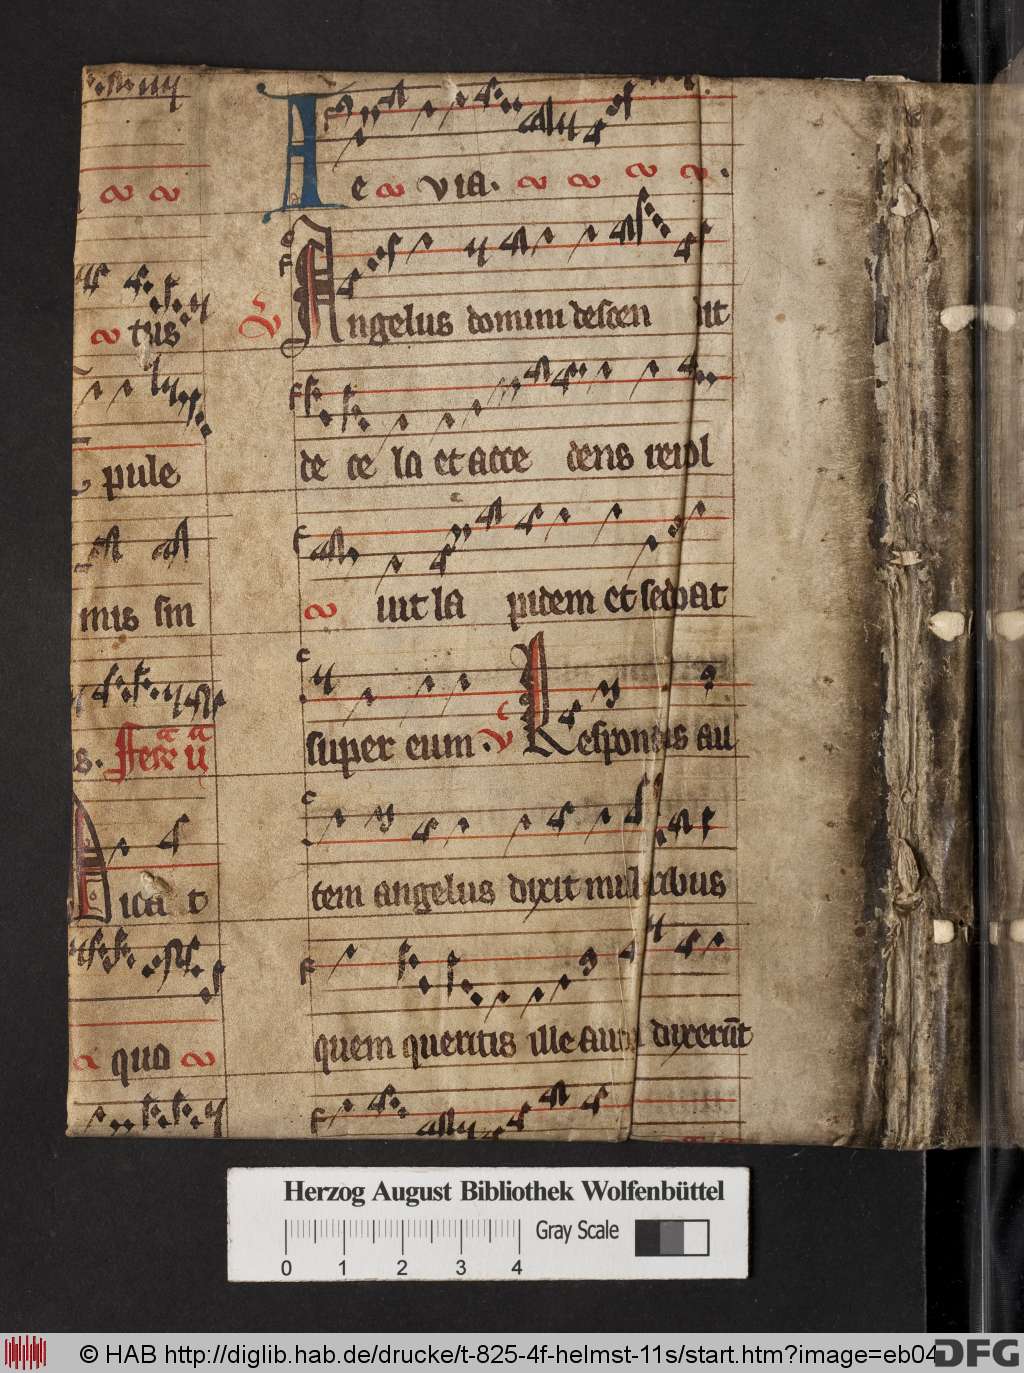 tus
pule
mis sin
s. Fe̅r̅ ij
icat
quo
A e via.
V Angelus domini descen dit
de ce lo et acce dens revol
vit la pidem et sedebat
super eum. V Respondens au
tem angelus dixit muli eribus
quem queritis ille autem dixerūt
Herzog August Bibliothek Wolfenbüttel
Gray Scale
0 1 2 3 4
© HAB http://diglib.hab.de/drucke/t-825-4f-helmst-11s/start.htm?image=eb04
DFG